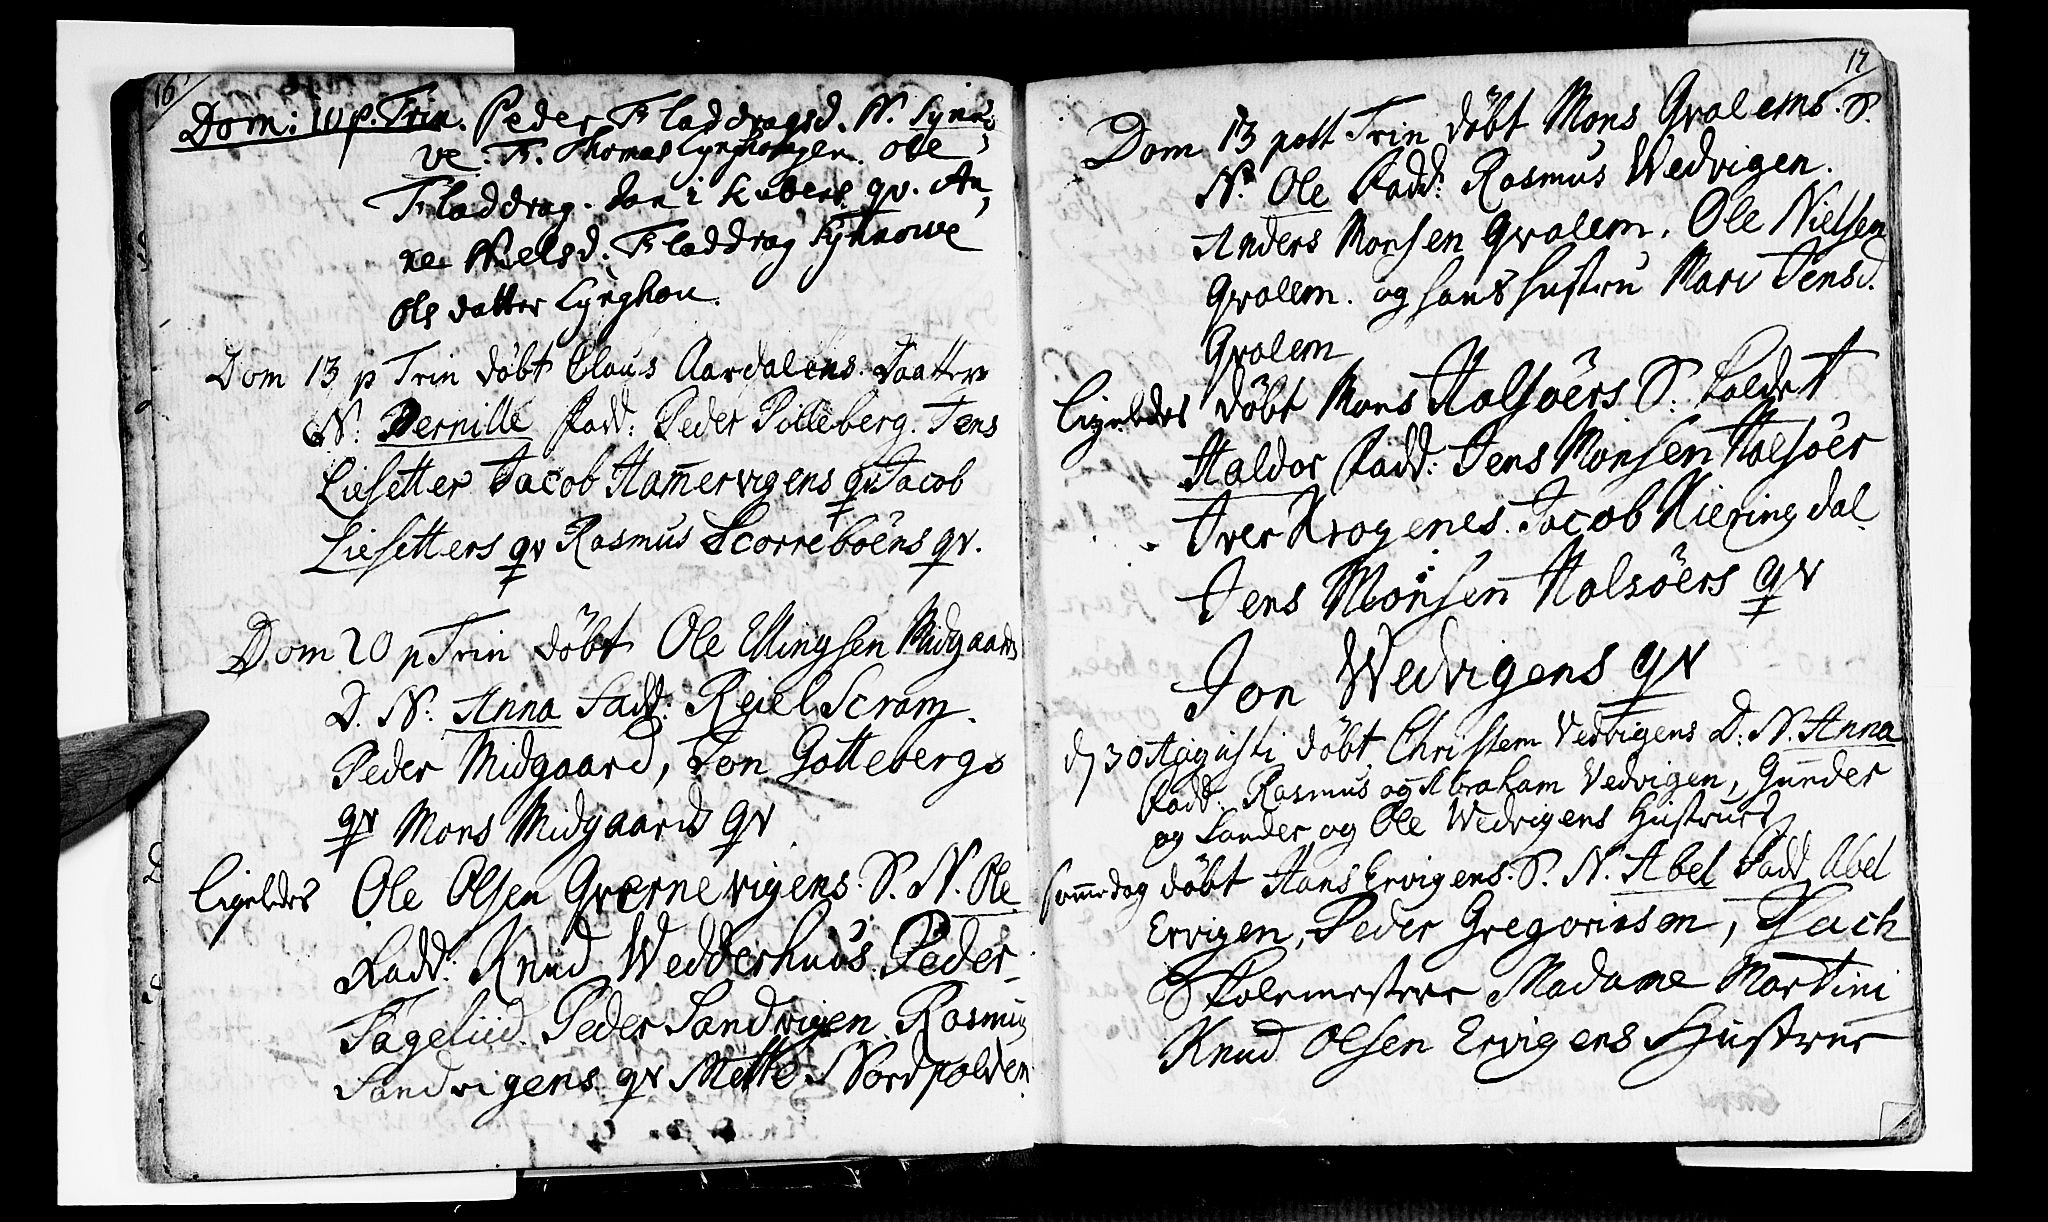 16
Dom: 10 p. Trin. Peder Fladdragsd. N. Synno,
ve. F. Thomas Lynghougen. Ole
Fladdrag. qv. An,
ne Nielsd. Fladdrag Synnowe
Ols datter Lynghou.
Dom 13 p Trin döbt Claus Aardalens Daatter
N: Pernille Fadd: Peder Pilleberg. Jens
Liesetter Jacob Ham̄ervigens qv Jacob
Liesetters qv Rasmus Scorreböens qv.
Dom 20 p Trin döbt Ole Ellingsen Midgaards
D. N: Anna Fadd: Reiel Scram.
Peder Midgaard, Jon Gottebergs
qv Mons Midgaards qv
ligeledes Ole Olsen Grernevigens S. N. Ole
Fadd: Knud Wedderhuus. Peder
Fageliid. Peder Sandvigen Rasmus
Sandvigens qv Mette Nordpolden
17
Dom 13 post Trin döbt Mons Qvalems S.
N. Ole Fadd: Rasmus Wedvigen.
Anders Monsen Qvalem. Ole Nielsen
Qvalem. og hans hustru Mari Jensd.
Qvalem
ligeledes döbt Mons Halsöers S. kaldet
Haldor Fadd: Jens Monsen Halsöer
Iver Krogenes. Jacob Kieringdal
Jens Monsen Halsöers qv
Jon Wedvigens qv
d 30 Augusti döbt Christen Vedvigens D: N. Anna
Fadd: Rasmus og Abraham Vedvigen, Gunder
og Sander og Ole Wedvigens Hustruer
sam̄e dag döbt Hans Ervigens S. N. Abel Fadd Abel
Ervigen, Peder Gregoriusen, Zach
Skolemester Madame Martini
Knud Olsen Ervigens Hustrue